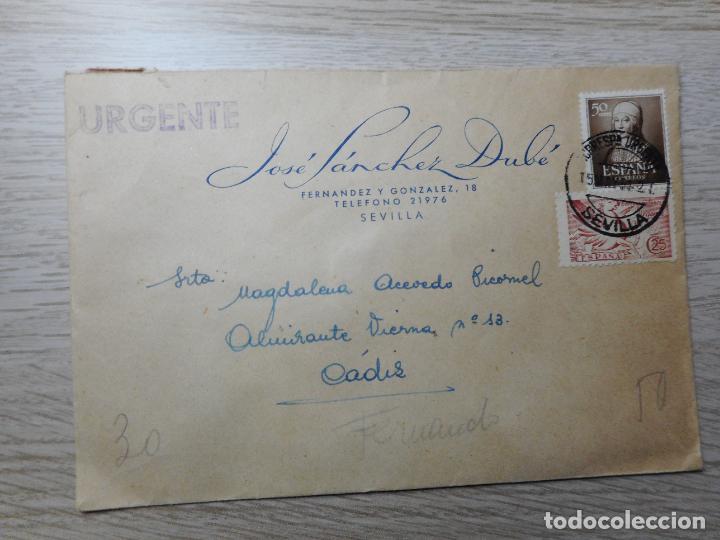 URGENTE
José Sánchez Dubé
FERNANDEZ Y GONZALEZ, 18
TELEFONO 21976
SEVILLA
50
ESPAÑA
CORREOS
SEVILLA
25
ESPAÑA
Srta. Magdalena Acevedo Picornel
Almirante Vierna, nº 13.
Cádiz
30
Fernando
50
todocoleccion.net